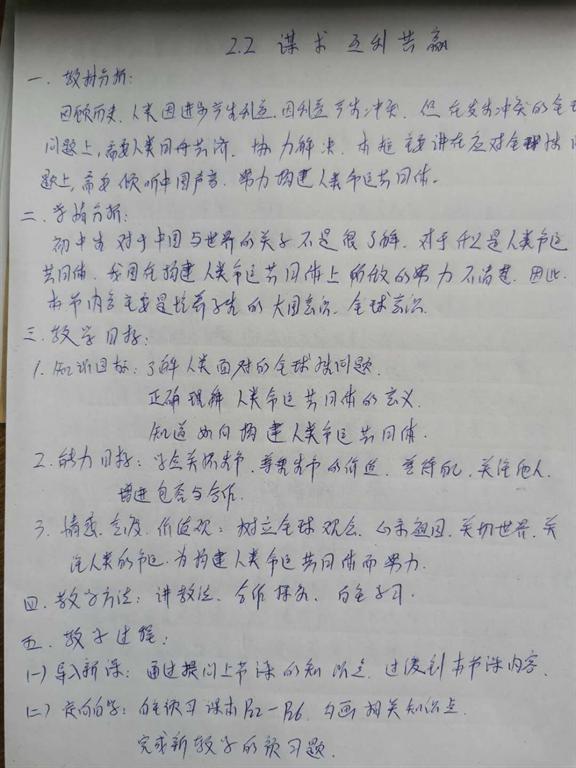 2.2 谋求互利共赢
一、教材分析:
回顾历史,人类因进步产生利益,因利益产生冲突,但在发生冲突的全球
问题上,需要人类同舟共济,协力解决。本框主要讲在应对全球性问
题上,需要倾听中国声音,努力构建人类命运共同体。
二、学情分析:
初中生对于中国与世界的关系不是很了解,对于什么是人类命运
共同体,我国在构建人类命运共同体上所做的努力不清楚,因此
本节内容主要是培养学生的大国意识、全球意识。
三、教学目标:
1.知识目标:了解人类面对的全球性问题。
正确理解人类命运共同体的意义。
知道如何构建人类命运共同体。
2.能力目标:学会关怀生命,尊重生命的价值,善待自己,关注他人,
增进包容与合作。
3.情感、态度、价值观:树立全球观念,心系祖国,关切世界,关
注人类的命运,为构建人类命运共同体而努力。
四、教学方法:讲教法、合作探究、自主学习。
五、教学过程:
(一)导入新课:通过提问上节课的知识点,过渡到本节课内容。
(二)定向自学:自主预习课本 勾画相关知识点。
完成新教学的预习题。